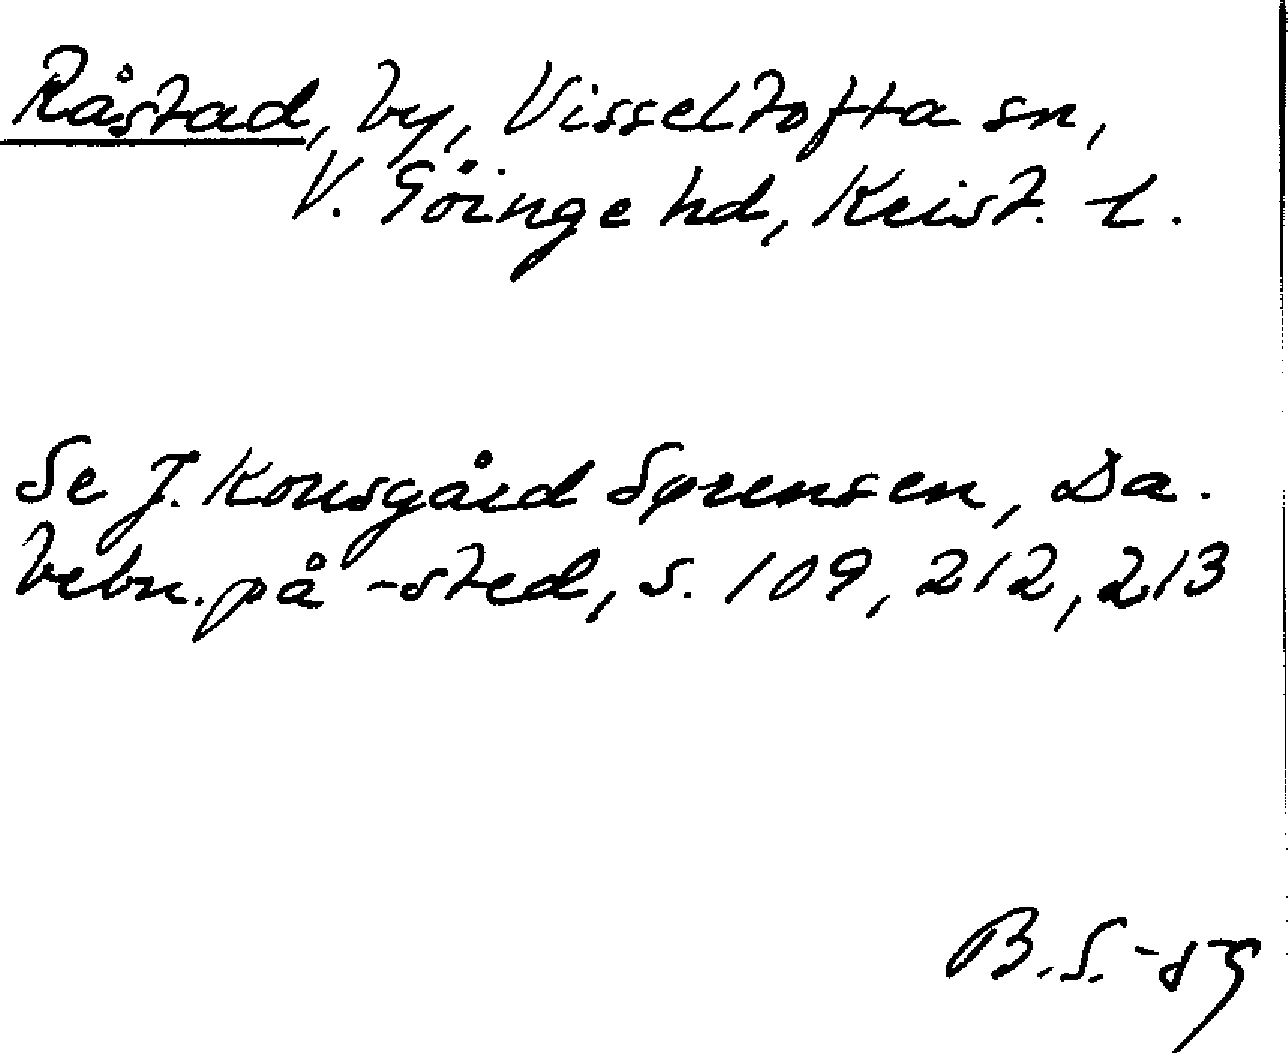 Råstad, by, Visseltofta sn,
V. Göinge hd, Krist. l.
Se J. Kousgård Sørensen, Da.
bebn. på -sted, s. 109, 212, 213
B. S.